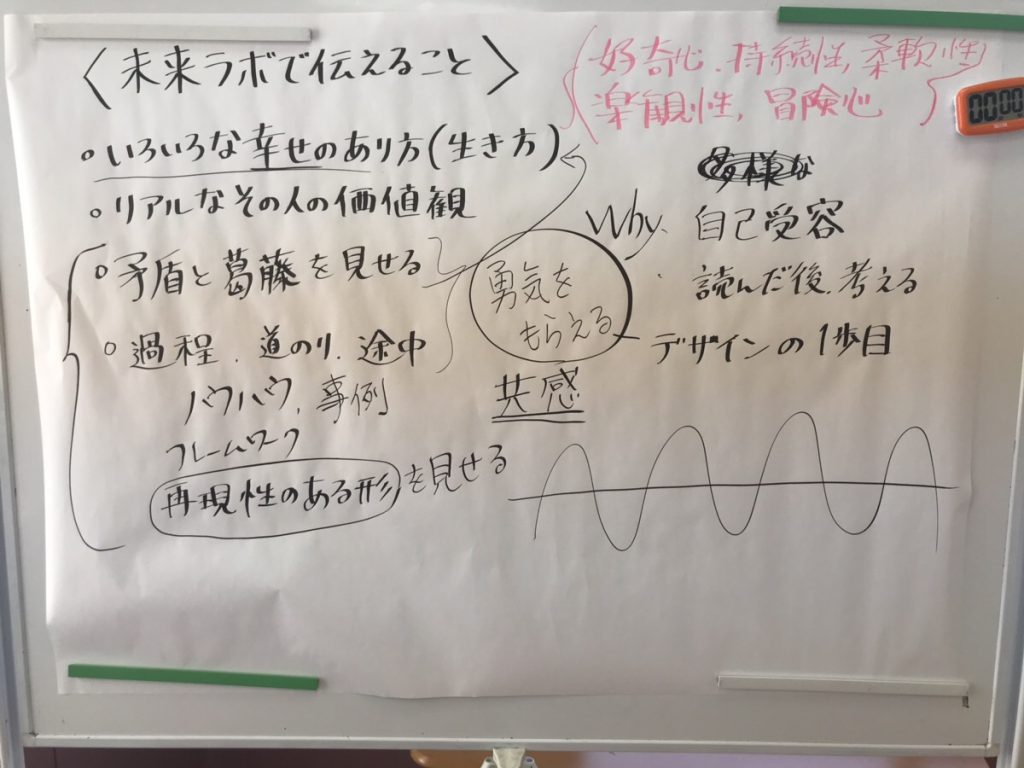 〈未来ラボで伝えること〉
好奇心、持続性、柔軟性
楽観性、冒険心
00:00
いろいろな幸せのあり方(生き方)
リアルなその人の価値観
矛盾と葛藤を見せる
過程、道のり、途中
ノウハウ、事例
フレームワーク
再現性のある形を見せる
勇気を
もらえる
共感
Why、自己受容
読んだ後、考える
デザインの1歩目